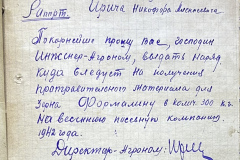 Ирича Никифора Моисеевича
Рапорт.
Покорнейше прошу Вас, господин
Инженер-Агроном, выдать наряд
куда следует на получения
протравительного материала для
зерна Формалину в колич. 300 кг.
На весеннюю посевную кампанию
1942 года.
Директор-Агроном: